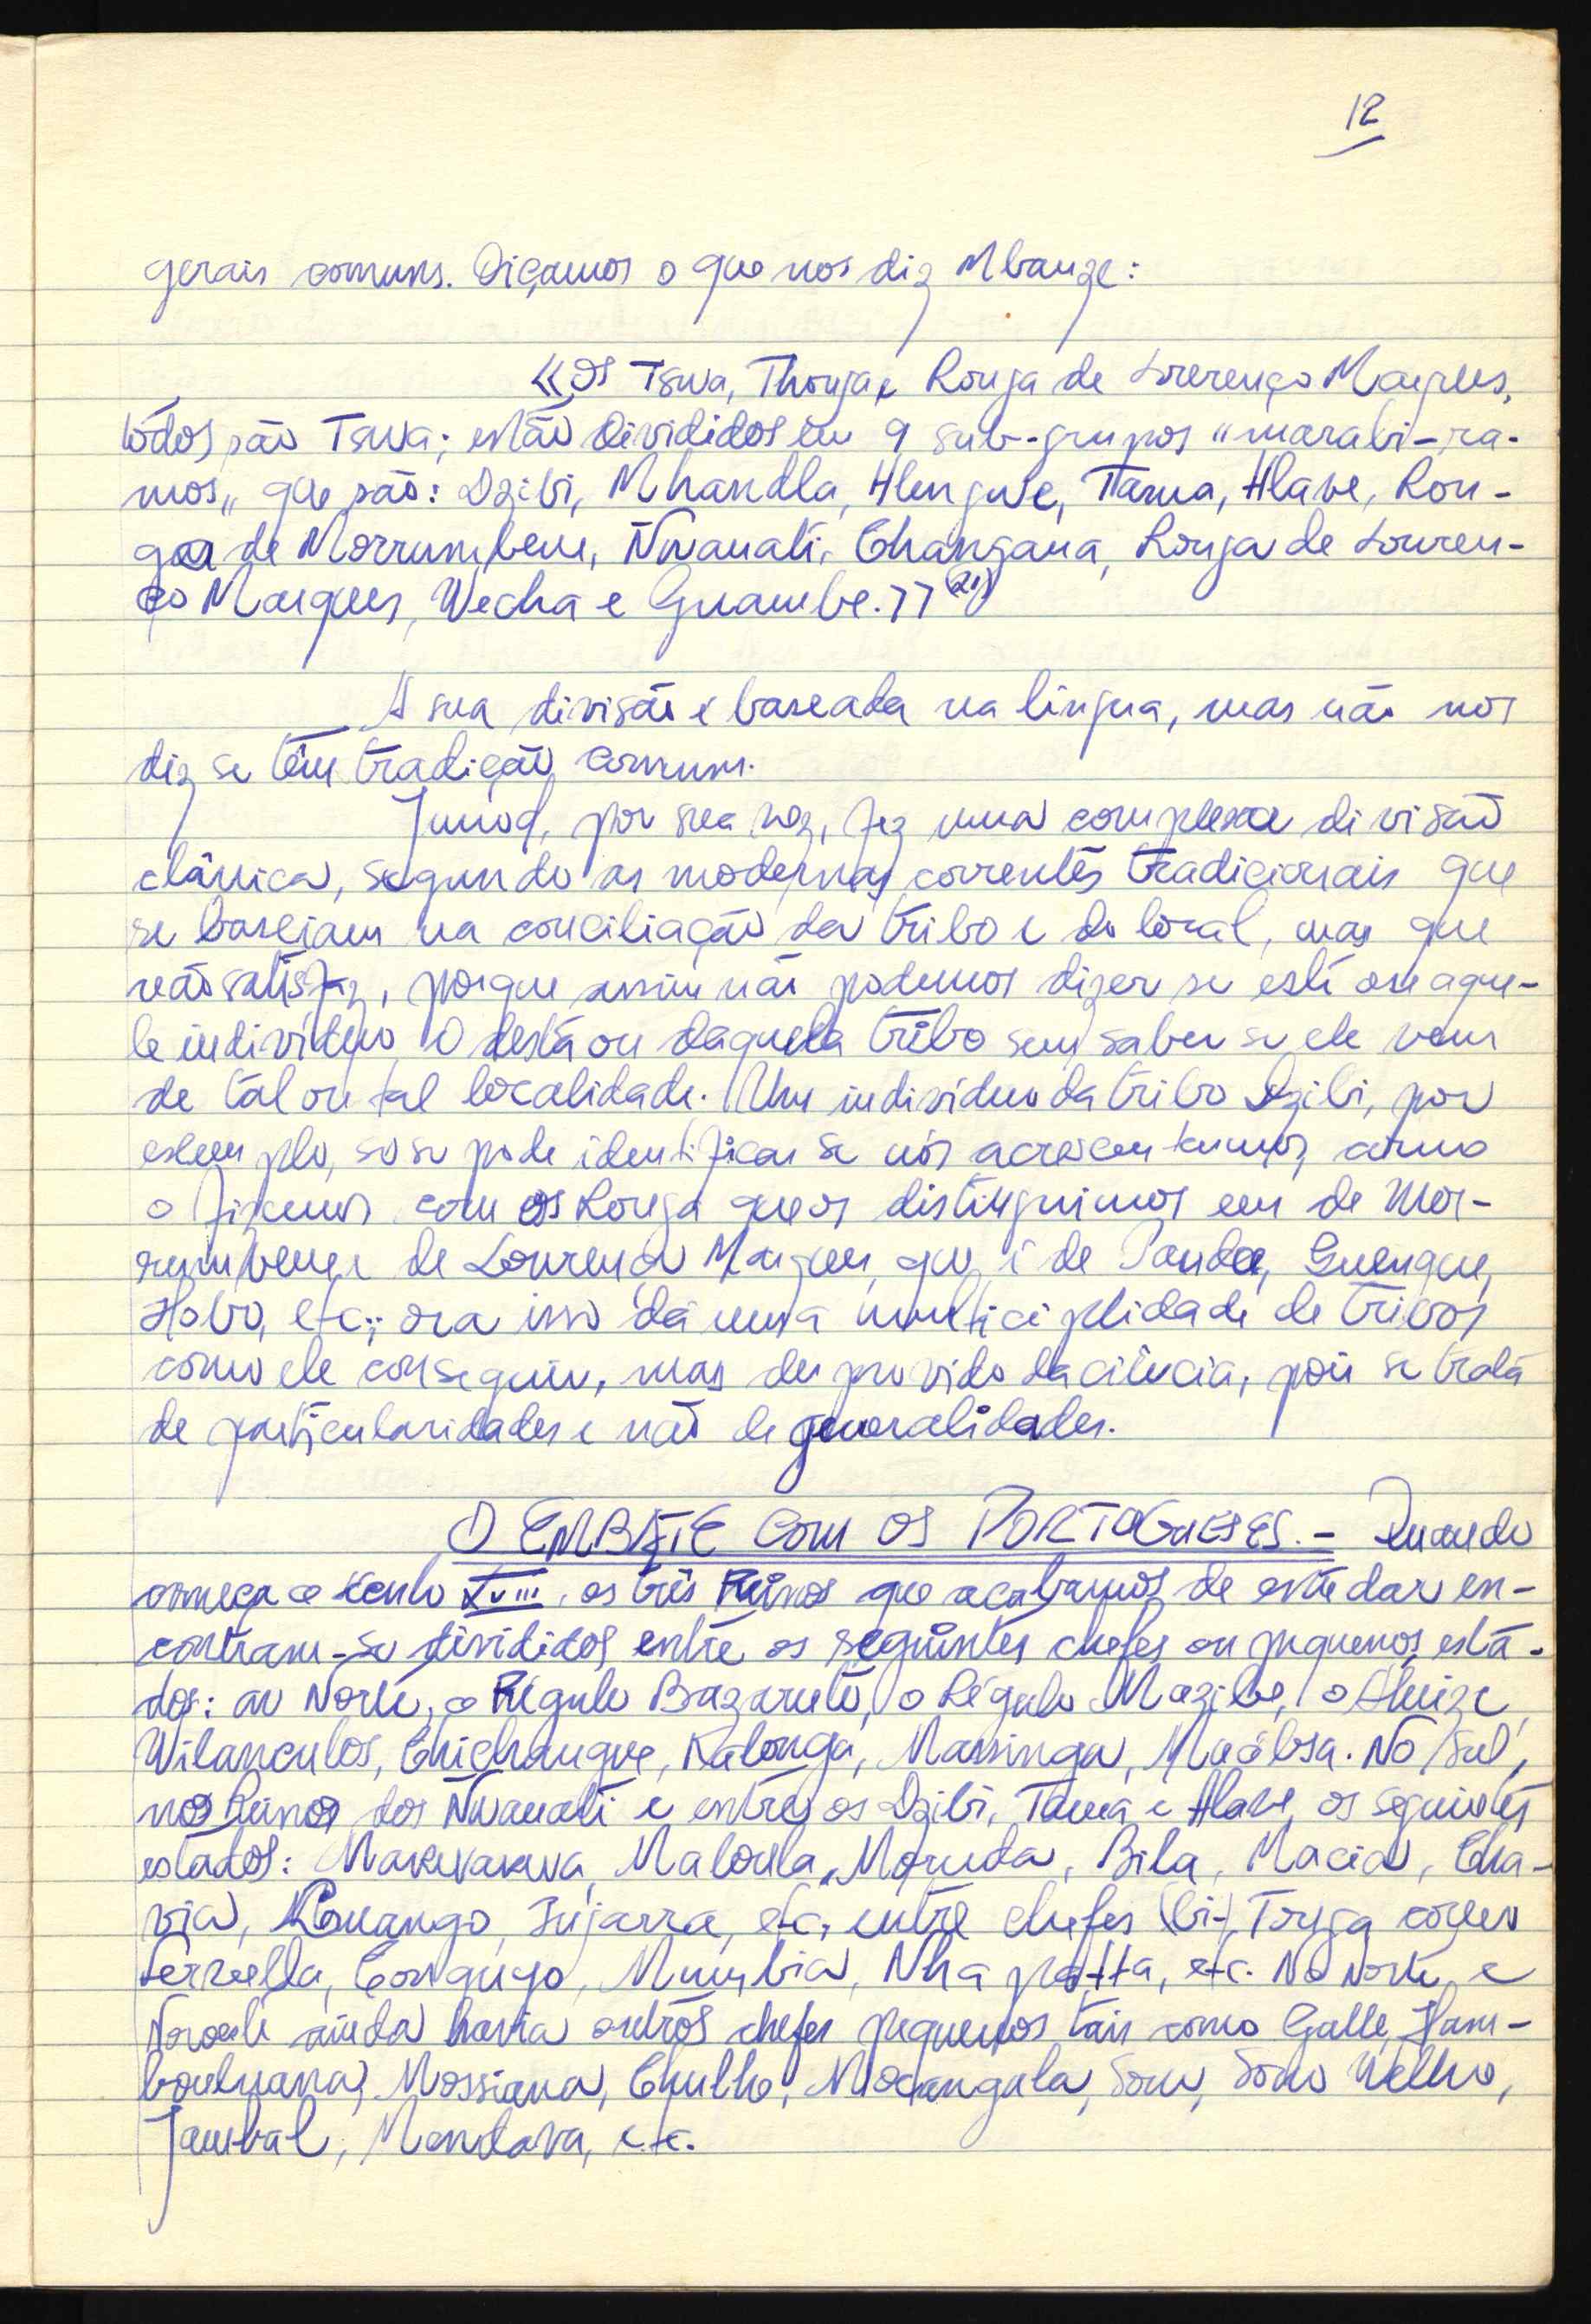 12
gerais comuns. Oiçamos o que nos diz Mbanze:
«Os Tswa, Thonga e Ronga de Lourenço Marques,
todos são Tswa; estão divididos em 9 sub-grupos "marabi-ra-
mos" que são: Dzibi, Mhandla, Hlengwe, Tama, Hlave, Ron-
ga de Morrumbene, Ñwanati, Changana, Ronga de Louren-
ço Marques, Wecha e Guambe.»(21)
A sua divisão é baseada na língua, mas não nos
diz se têm tradição comum.
Junod, por sua vez, fez uma complexa divisão
clânica, segundo as modernas correntes tradicionais que
se baseiam na conciliação da tribo e do local, mas que
não satisfaz, porque assim não podemos dizer se este ou aque-
le indivíduo é desta ou daquela tribo sem saber se ele vem
de tal ou tal localidade. Um indivíduo da tribo Dzibi, por
exemplo, só se pode identificar se nós acrescentamos, como
o fizemos com os Ronga que os distinguimos em de Mor-
rumbene e de Lourenço Marques, que é de Panda, Guengue,
Hobo, etc; ora isso dá uma multiciplidade de tribos
como ele conseguiu, mas desprovido da ciência, pois se trata
de particularidades e não de generalidades.
O EMBATE COM OS PORTUGUESES. - Quando
começa o século XVIII, os três Reinos que acabamos de estudar en-
contram-se divididos entre os seguintes chefes ou pequenos esta-
dos: ao Norte, o Régulo Bazaruto, o Régulo Mazibe, o
Wilanculos, Chichangue, Kalonga, Massinga, No Sul,
nos Reinos dos Ñwanati e entre os Dzibi, Tama e Hlave, os seguintes
estados: Makwakwa, Bila, Macia, Cha-
via, Injarra, etc, entre chefes (bi-) Tonga como
Mumbia, Nha patta, etc. No Norte e
Noroeste ainda havia outros chefes pequenos tais como Galle, Ham-
Mossiana, Mocangala, Velho,
Jambal, Mendava, etc.